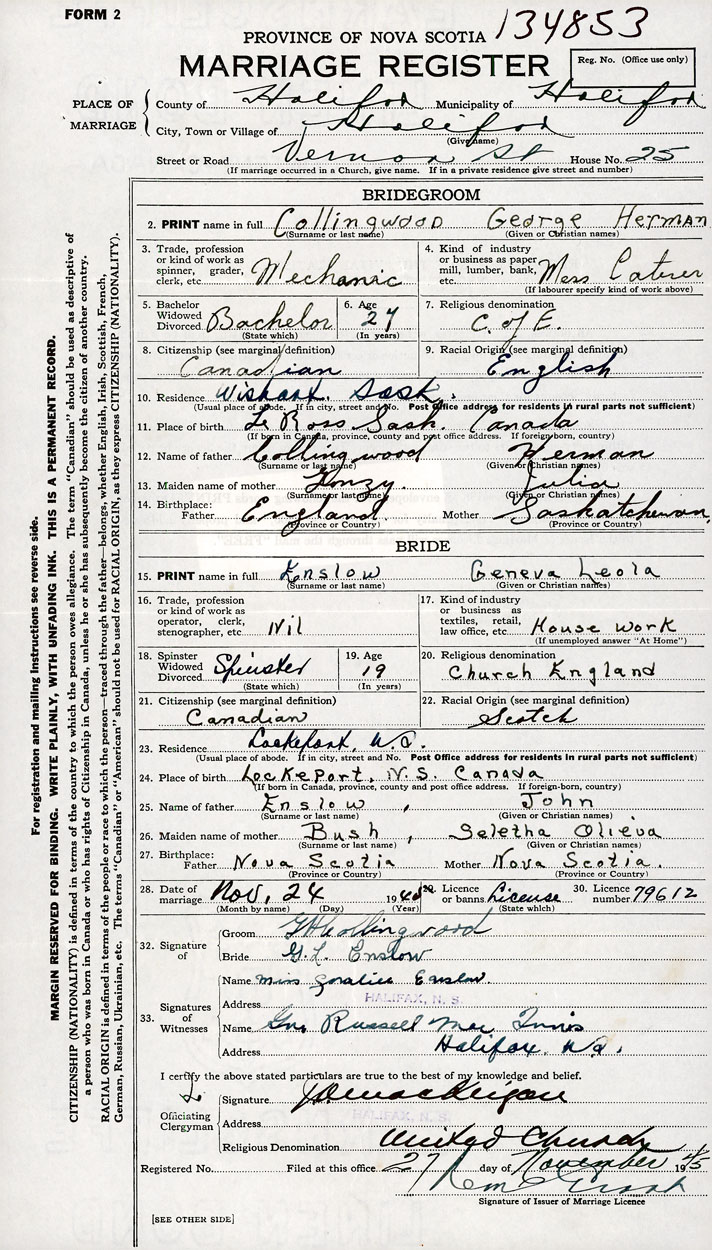 FORM 2
134853
PROVINCE OF NOVA SCOTIA
MARRIAGE REGISTER
Reg. No. (Office use only)
PLACE OF MARRIAGE
County of Halifax Municipality of Halifax
City, Town or Village of Halifax
(Give name)
Street or Road Vernon St House No. 25
(If marriage occurred in a Church, give name. If in a private residence give street and number)
BRIDEGROOM
2. PRINT name in full Collingwood George Herman
(Surname or last name) (Given or Christian names)
3. Trade, profession or kind of work as spinner, grader, clerk, etc. Mechanic
4. Kind of industry or business as paper mill, lumber, bank, etc. Mess Caterer
(If labourer specify kind of work above)
5. Bachelor Widowed Divorced Bachelor
(State which)
6. Age 27
(In years)
7. Religious denomination
C. of E.
8. Citizenship (see marginal definition)
Canadian
9. Racial Origin (see marginal definition)
English
10. Residence Wishart. Sask.
(Usual place of abode. If in city, street and No. Post Office address for residents in rural parts not sufficient)
11. Place of birth Le Ross Sask. Canada
(If born in Canada, province, county and post office address. If foreign-born, country)
12. Name of father Collingwood Herman
(Surname or last name) (Given or Christian names)
13. Maiden name of mother Julia
(Surname or last name) (Given or Christian names)
14. Birthplace: Father England. Mother Saskatchewan,
(Province or Country) (Province or Country)
BRIDE
15. PRINT name in full Enslow Geneva Leola
(Surname or last name) (Given or Christian names)
16. Trade, profession or kind of work as operator, clerk, stenographer, etc. Nil
17. Kind of industry or business as textiles, retail, law office, etc. House Work
(If unemployed answer "At Home")
18. Spinster Widowed Divorced Spinster
(State which)
19. Age 19
(In years)
20. Religious denomination
Church England
21. Citizenship (see marginal definition)
Canadian
22. Racial Origin (see marginal definition)
Scotch
23. Residence Lockeport, N.S.
(Usual place of abode. If in city, street and No. Post Office address for residents in rural parts not sufficient)
24. Place of birth Lockeport, N.S. Canada
(If born in Canada, province, county and post office address. If foreign-born, country)
25. Name of father Enslow, John
(Surname or last name) (Given or Christian names)
26. Maiden name of mother Bush, Seletha Olieva
(Surname or last name) (Given or Christian names)
27. Birthplace: Father Nova Scotia Mother Nova Scotia.
(Province or Country) (Province or Country)
28. Date of marriage Nov, 24 194
(Month by name) (Day) (Year)
29. Licence or banns License
(State which)
30. Licence number 79612
32. Signature of
Groom GH Collingwood
Bride G.L. Enslow
33. Signatures of Witnesses
Name Miss Enslow
Address HALIFAX, N. S.
Name Russell Mac Innis
Address Halifax. N.S.
I certify the above stated particulars are to the best of my knowledge and belief.
Officiating Clergyman
Signature
Address HALIFAX, N. S.
Religious Denomination United Church
Registered No. Filed at this office 27 day of November 1945
Signature of Issuer of Marriage Licence
[SEE OTHER SIDE]
For registration and mailing Instructions see reverse side.
MARGIN RESERVED FOR BINDING. WRITE PLAINLY, WITH UNFADING INK. THIS IS A PERMANENT RECORD.
CITIZENSHIP (NATIONALITY) is defined in terms of the country to which the person owes allegiance. The term "Canadian" should be used as descriptive of
a person who was born in Canada or who has rights of Citizenship in Canada, unless he or she has subsequently become the citizen of another country.
RACIAL ORIGIN is defined in terms of the people or race to which the person—traced through the father—belongs, whether English, Irish, Scottish, French,
German, Russian, Ukrainian, etc. The terms "Canadian" or "American" should not be used for RACIAL ORIGIN, as they express CITIZENSHIP (NATIONALITY).